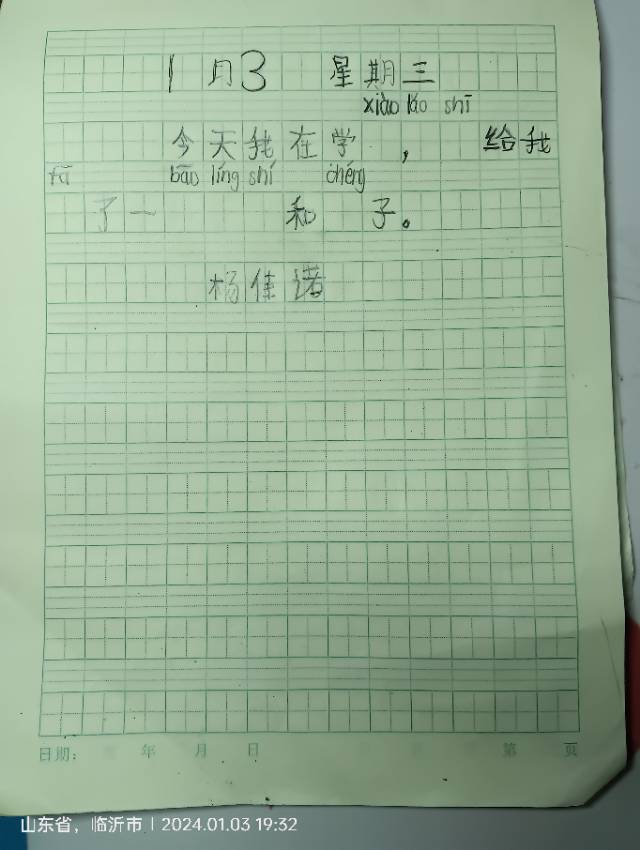 1月3 星期三
xiào lǎo shī
今天我在学 , 给我
fā bāo líng shí chéng
了一 和 子。
杨佳诺
日期: 年 月 日 第 页
山东省，临沂市 | 2024.01.03 19:32